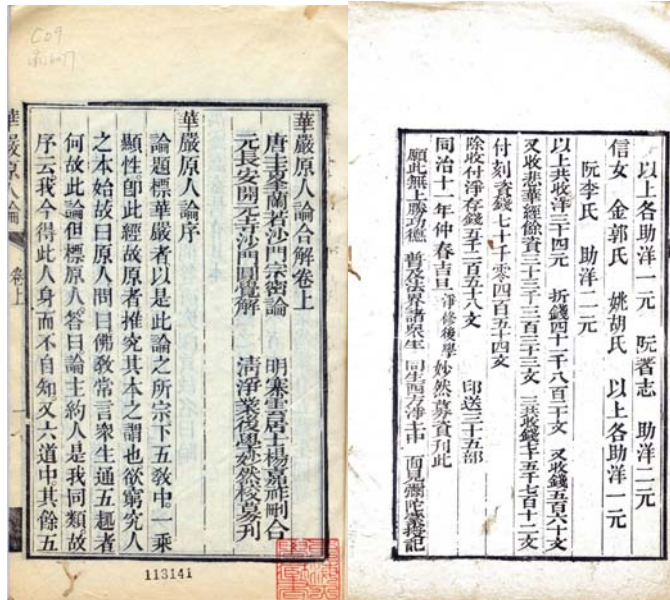 華嚴原人論合解卷上
唐圭峯蘭若沙門宗密論 明寨雲居士楊嘉祚刪合
元長安開元寺沙門圓覺解 淸淨業後學妙然校募刋
華嚴原人論序
論題標華嚴者以是此論之所宗下五敎中一乘
顯性卽此經故原者推究其本之謂也欲窮究人
之本始故曰原人問曰佛敎常言衆生通五趣者
何故此論但標原人答曰論主約人是我同類故
序云我今得此人身而不自知又六道中其餘五
華嚴原人論 卷上 一
113141
C09
以上各助洋一元 阮著志 助洋二元
信女 金郭氏 姚胡氏 以上各助洋一元
阮李氏 助洋二元
以上共收洋三十四元 折錢四十二千八百三十文 又收錢五百六十文
又收悲華經餘資三十三千三百二十三文 三共收錢七十五千七百十二文
付刻資錢七十千零四百五十四文
除收付淨存錢五千二百五十八文 印送三十五部
同治十一年仲春吉旦淨修後學妙然募資刋此
願此無上勝功德 普及法界諸衆生 同生西方淨土中 面見彌陀蒙授記